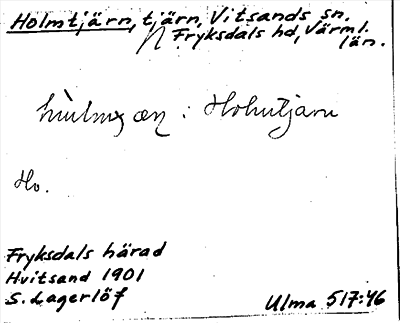 Holmtjärn, tjärn, Vitsands sn.
Fryksdals hd, Värml.
län.
Holmtjärn
Ho.
Fryksdals härad
Hvitsand 1901
S. Lagerlöf
Ulma 517:46